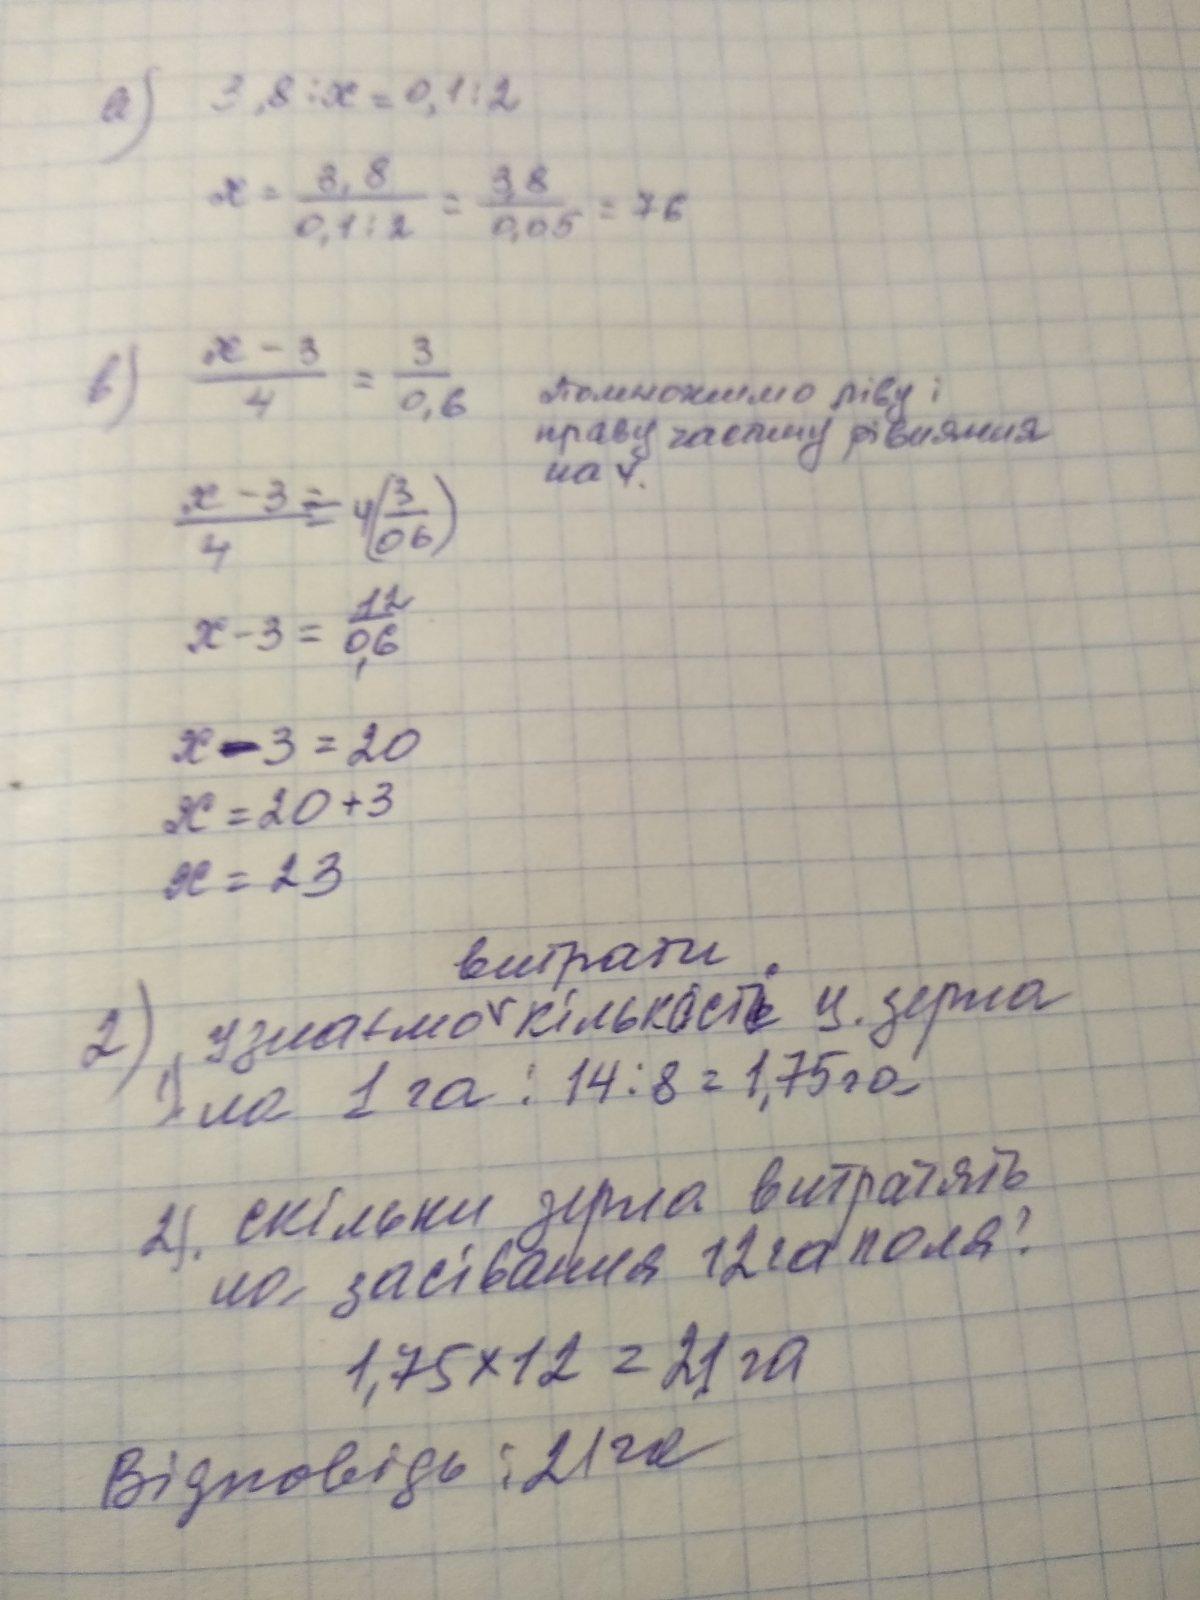 а) 3,8 : х = 0,1 : 2
х = 3,8 / 0,1:2 = 3,8 / 0,05 = 76
в) х - 3 / 4 = 3 / 0,6
Помножимо ліву і
праву частину рівняння
на 4.
х - 3 / 4 = 4(3 / 06)
х - 3 = 12 / 0,6
х - 3 = 20
х = 20 + 3
х = 23
витрати
2) 1) узнаємо кількість ц. зерна
на 1 га : 14 : 8 = 1,75 га
2). скільки зерна витратять
на засівання 12 га поля?
1,75 × 12 = 21 га
Відповідь : 21 га